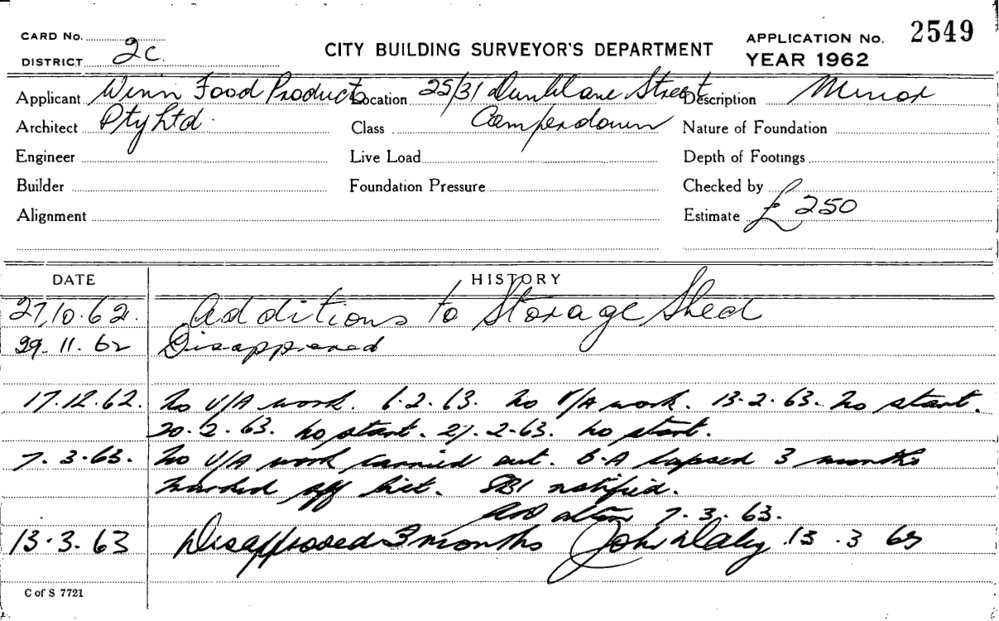 CARD No.
DISTRICT 2C.
CITY BUILDING SURVEYOR'S DEPARTMENT
APPLICATION No. 2549
YEAR 1962
Applicant Winn Food Products Location 25/31 Dunblane Street Description Minor
Architect Pty Ltd. Class Camperdown Nature of Foundation
Engineer Live Load Depth of Footings
Builder Foundation Pressure Checked by
Alignment Estimate £250
DATE HISTORY
27.10.62. Additions to Storage Shed
29.11.62 Disapproved
17.12.62. No U/A work. 6.2.63. No U/A work. 13.2.63. No start.
20.2.63. No start. 27.2.63. No start.
7.3.63. No U/A work carried out. B.A lapsed 3 months
marked off list. SBI notified.
7.3.63.
13.3.63 Disapproved 3 months John Daley 13.3.63
C of S 7721